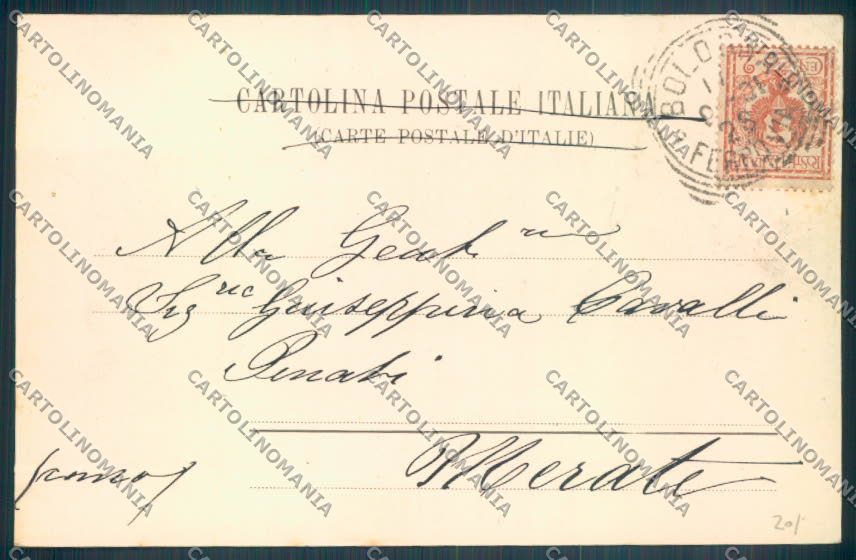 CARTOLINA POSTALE ITALIANA
(CARTE POSTALE D'ITALIE)
BOLOGNA
FERROVIA
Alla Gentma
Sigra Giuseppina Cavalli
Penati
Merate
20/
CARTOLINOMANIA